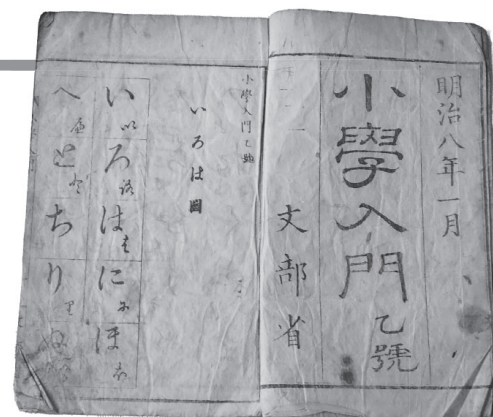 明治八年一月
小學入門 乙號
文部省
小學入門乙號
いろは圖
い ろ は に ほ
へ と ち り ぬ